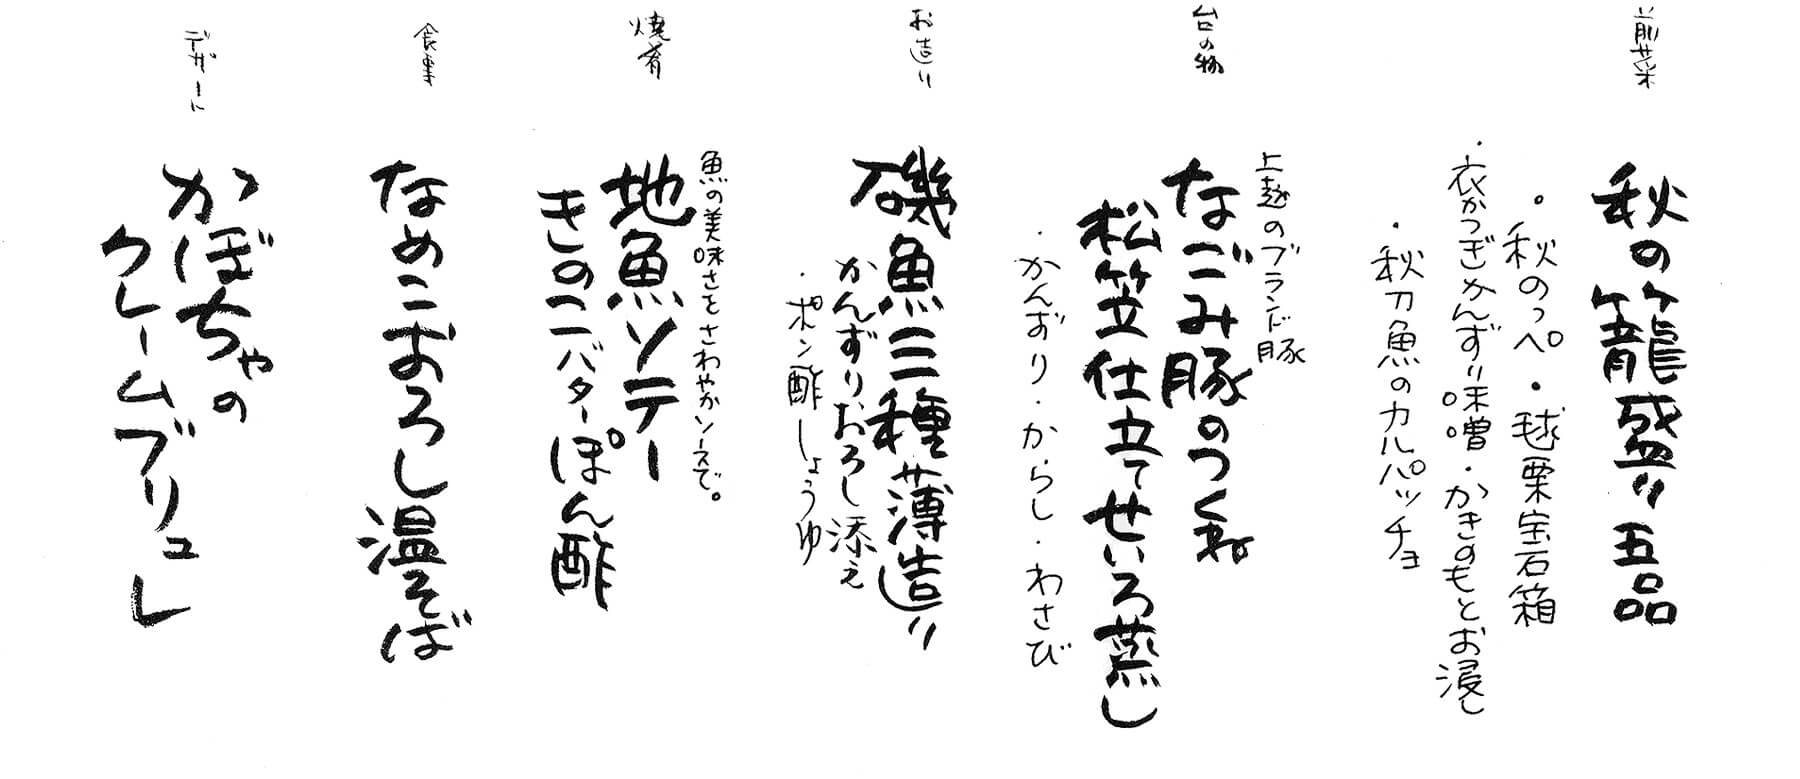 前菜
秋の籠盛り五品
。秋のっぺ・毬栗宝石箱
・衣かつぎかんずり味噌・かきのもとお浸し
・秋刀魚のカルパッチョ
台の物
上越のブランド豚
なごみ豚のつくね
松笠仕立てせいろ蒸し
・かんずり・からし・わさび
お造り
磯魚三種薄造り
かんずりおろし添え
・ポン酢しょうゆ
焼肴
魚の美味さをさわやかソースで。
地魚ソテー
きのこバターぽん酢
食事
なめこおろし温そば
デザート
かぼちゃの
クレームブリュレ